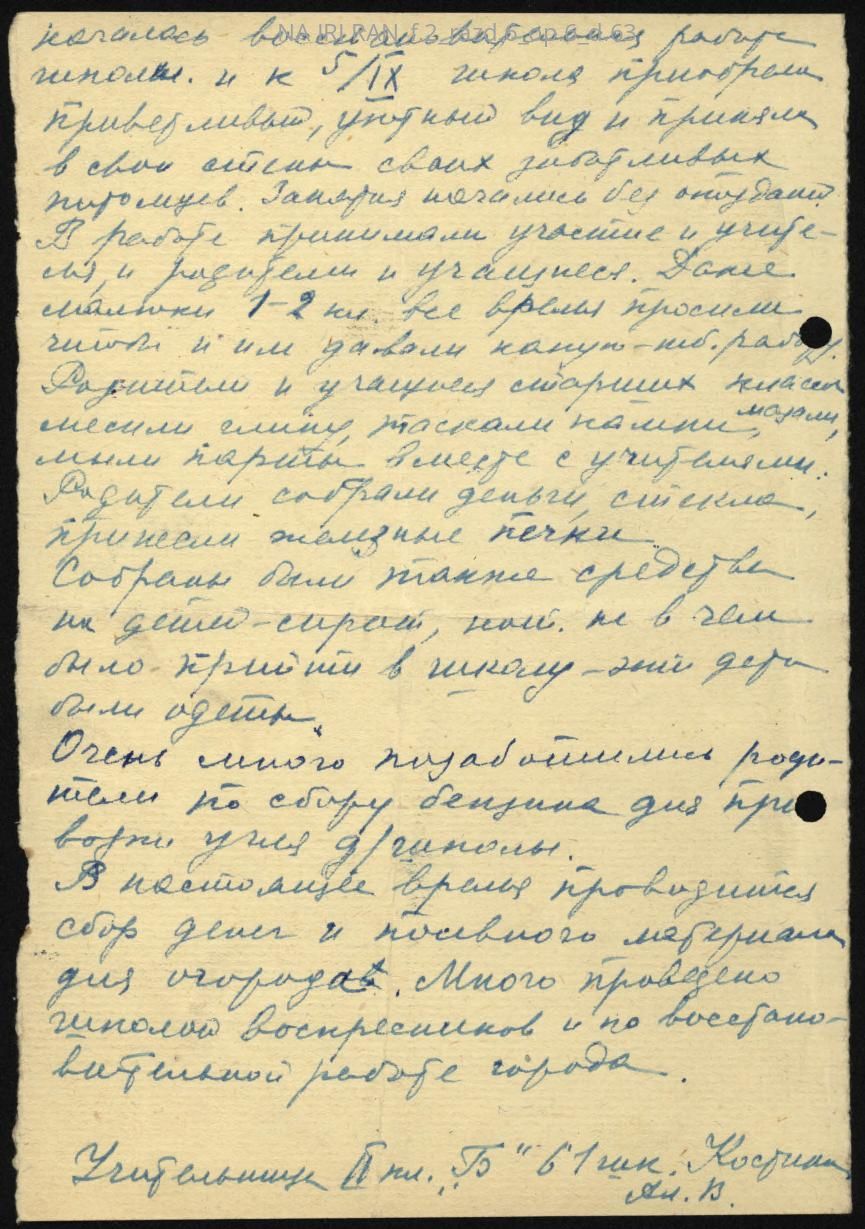 NA IRI RAN f.2 razd.6 op.6 d.63
началась восстановительная работа
школы. и к 5/IX школа приобрела
приветливый, уютный вид и приняла
в свои стены своих заботливых
питомцев. Занятия начались без опозданий.
В работе принимали участие и учите-
ля, и родители и учащиеся. Даже
малютки 1-2 кл. все время просили
чтобы и им давали какую-ниб. работу.
Родители и учащиеся старших классов
месили глину, таскали камни, мазали,
мыли парты вместе с учителями.
Родители собрали деньги, стекла,
принесли железные печки
Собраны были также средства
на детей-сирот, кот. не в чем
было прийти в школу – эти дети
были одеты.
Очень много позаботились роди-
тели по сбору бензина для при
возки угля д/школы.
В настоящее время проводится
сбор денег и посевного материала
для огородов. Много проведено
школой воскресников и по восстано-
вительной работе города.
Учительница II кл. „Б" 61 шк. Костина
Ал. В.